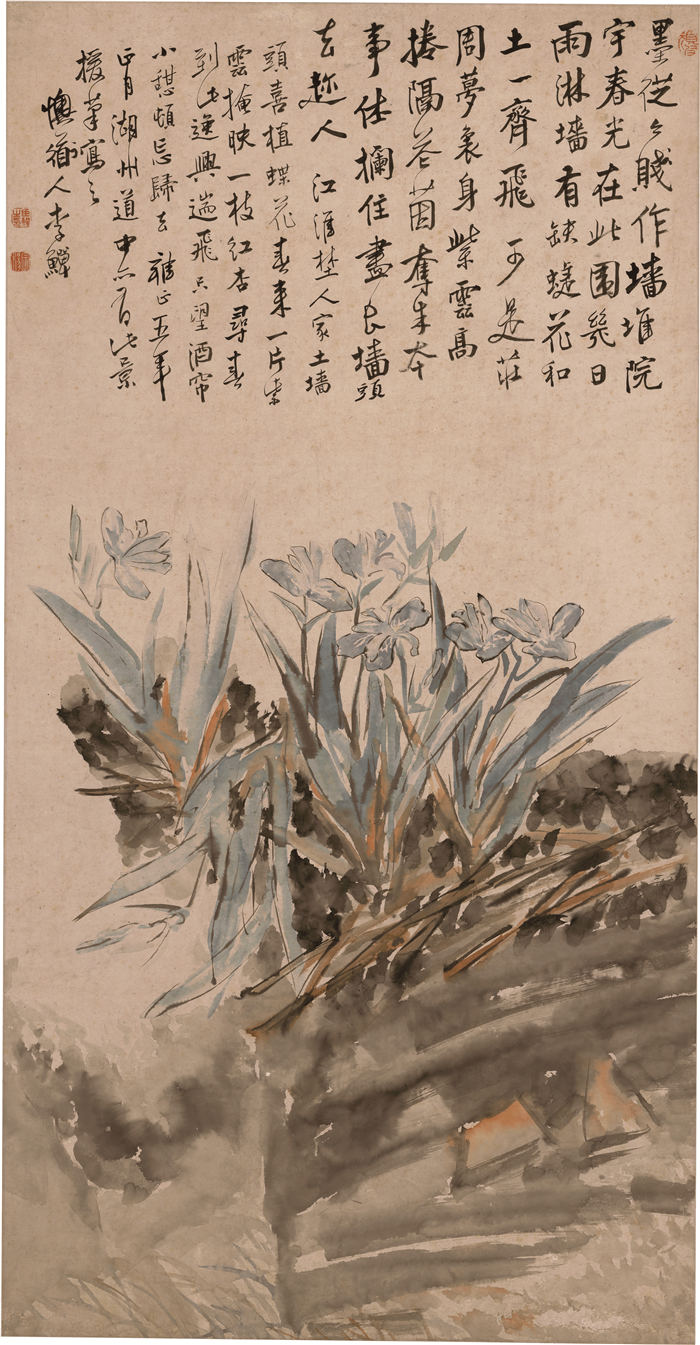 墨從今賤作墻堆院
宇春光在此園幾日
雨淋墻有缺蜨花和
土一齊飛 可是莊
周夢裏身紫雲高
捲隔花茵奪朱本
事仕攔住盡上墻頭
去趂人 江淮埜人家土墻
頭喜植蝶花春来一片紫
雲掩映一枝红杏尋春
到此逸興遄飛只望酒帘
小憇頓忘歸去 雍正五年
正月湖州道中六有此景
援筆寫之
懊道人李鱓